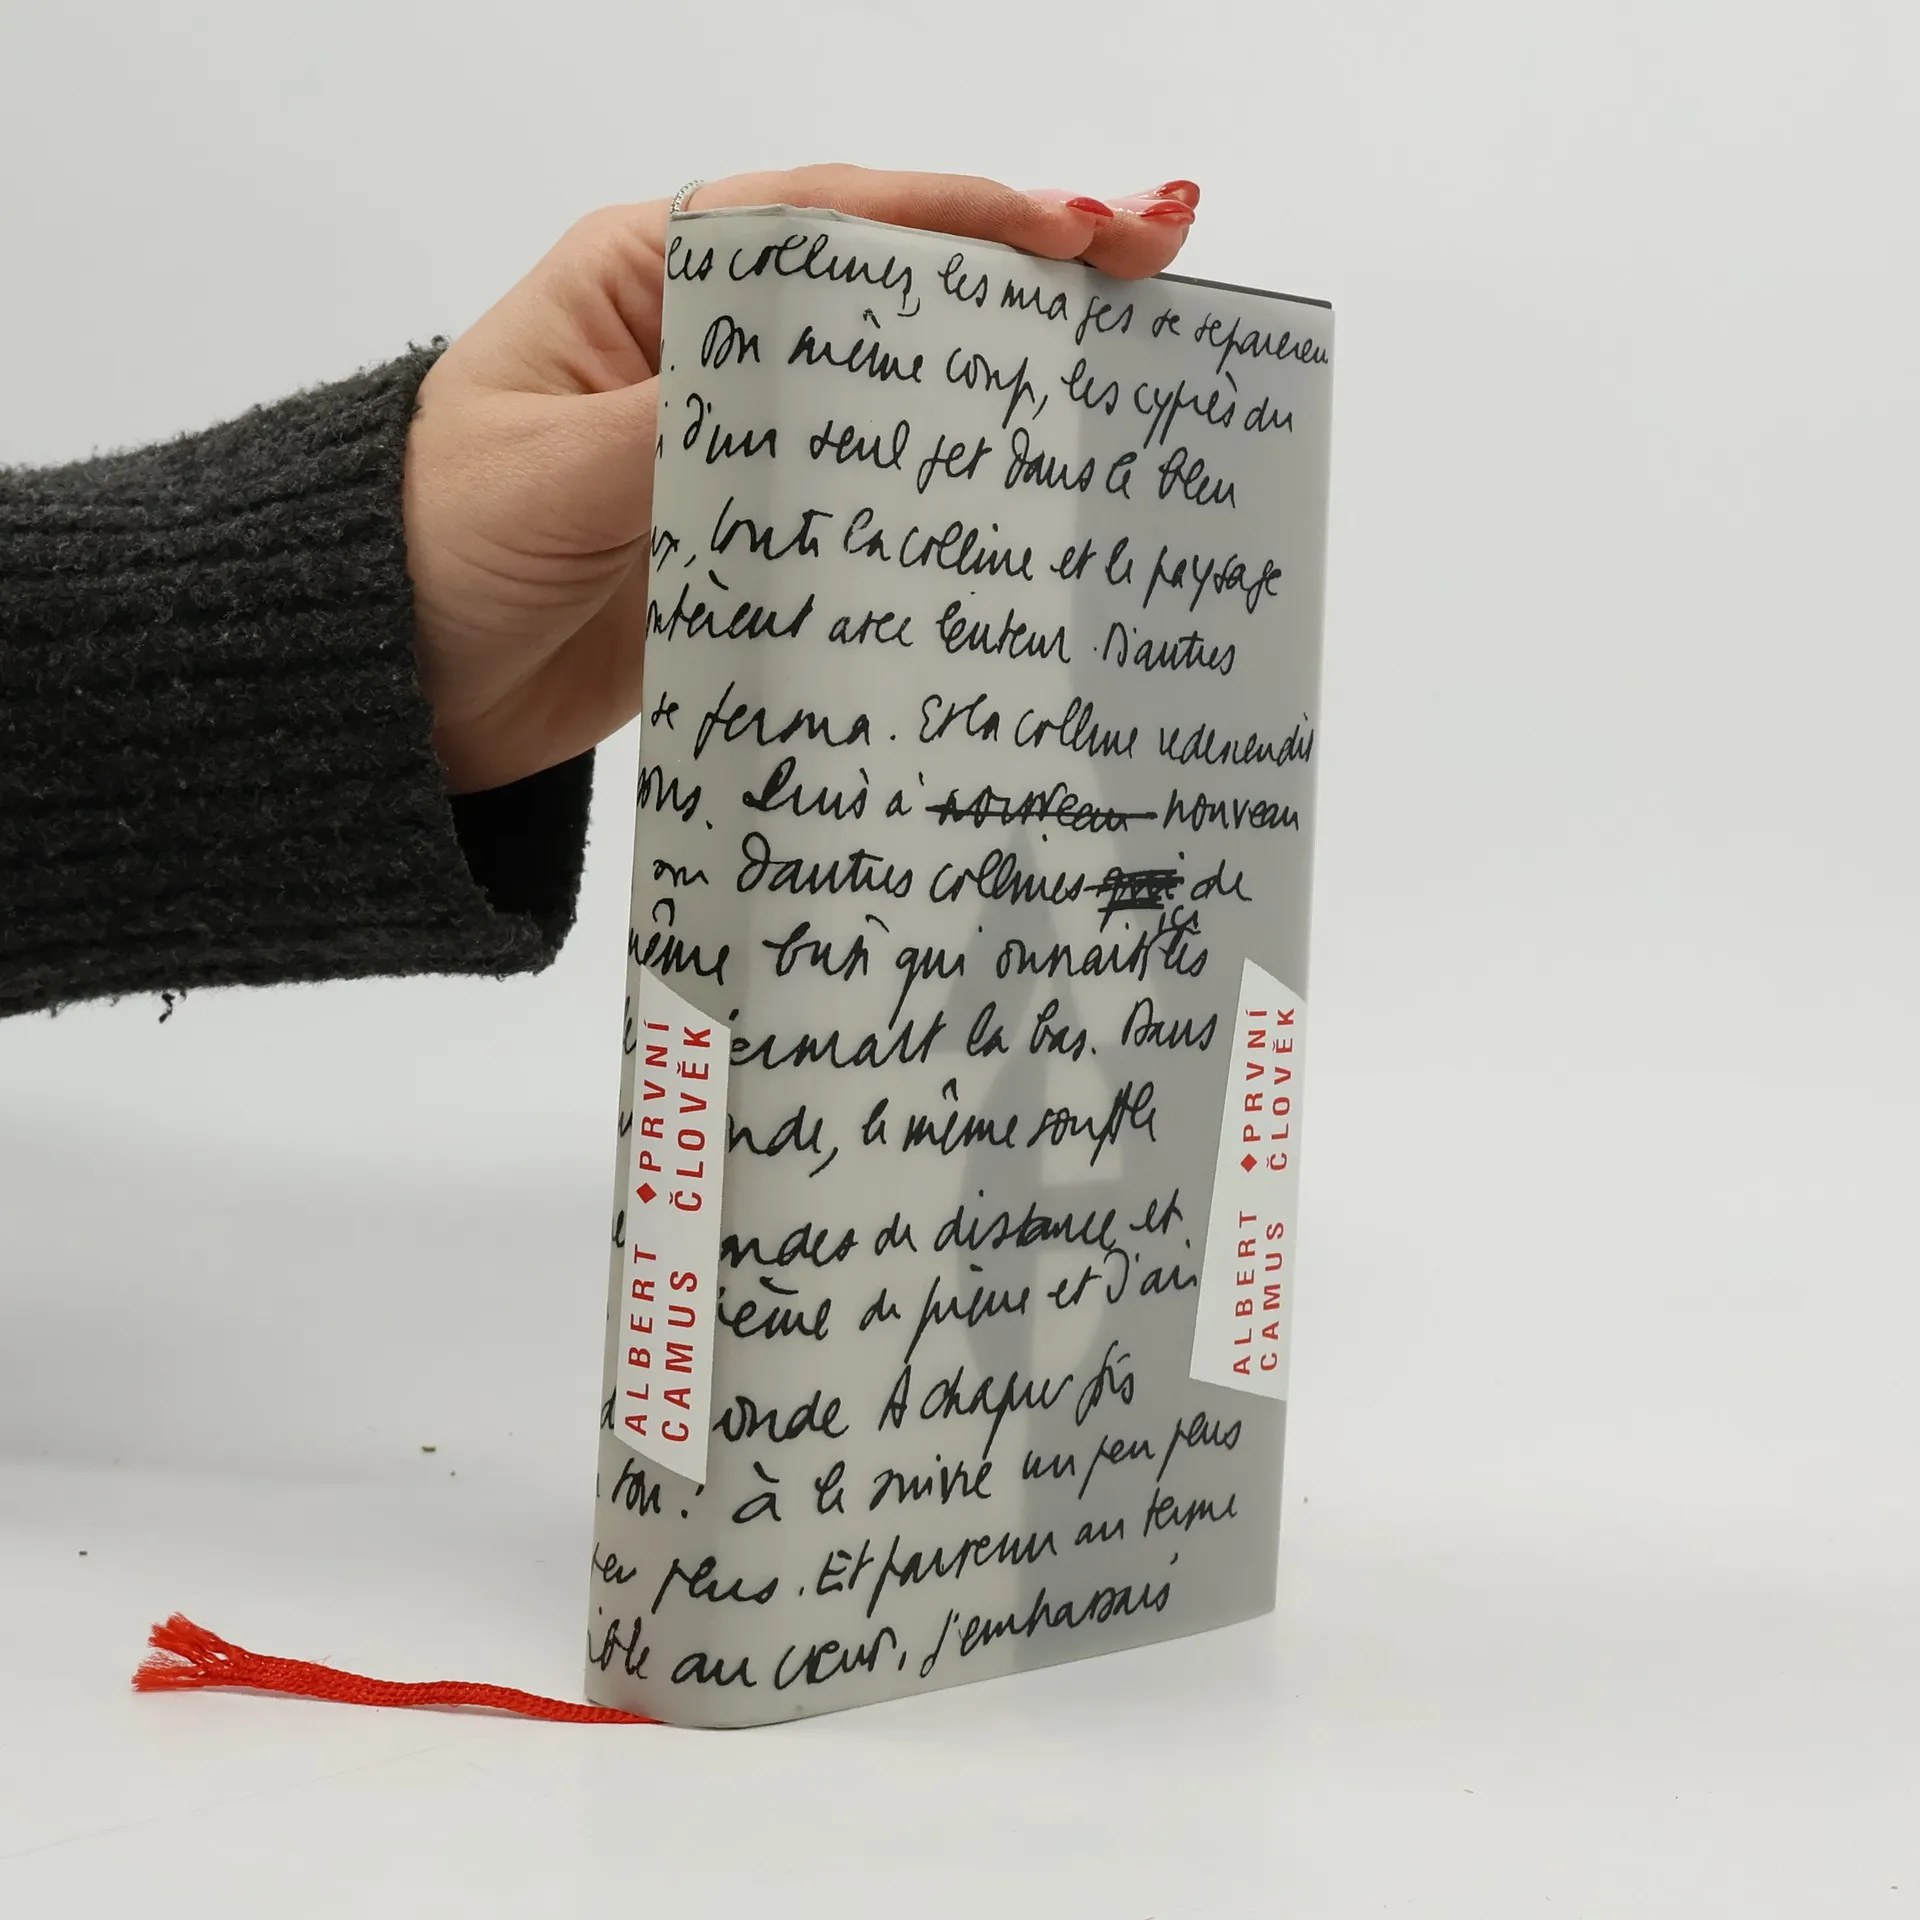 les collines, les nuages se separeren
. Du même coup, les cyprès du
i d'un seul jet dans le bleu
ux, toute la colline et le paysage
ntèrent avec lenteur. D'autres
se ferma. Et la colline redescendit
ous. Puis à nouveau nouveau
on d'autres collines qui de
même qui onnait ici les
ermait la bas. Dans
nde, le même souffle
andes de distance et
ième de pierre et j'ai
onde A chaque fois
son: à le suivre un peu plus
peu plus. Et parvenu au terme
ible au cœur, j'embrassais
ALBERT ◆ PRVNÍ
CAMUS ČLOVĚK
ALBERT ◆ PRVNÍ
CAMUS ČLOVĚK